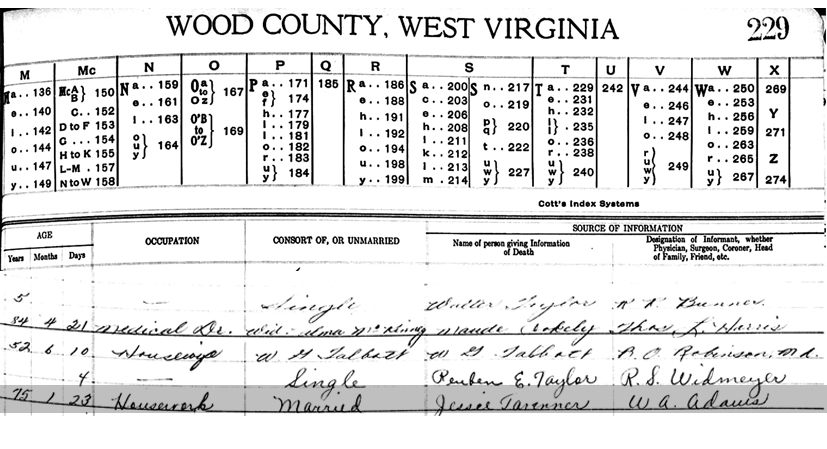 WOOD COUNTY, WEST VIRGINIA 229
M Mc N O P Q R S T U V W X
Ma.. 136 McA B} 150 Na.. 159 Oa to Oz} 167 Pa.. 171 185 Ra.. 186 Sa.. 200 Sn.. 217 Ta.. 229 242 Va.. 244 Wa.. 250 269
e.. 140 C.. 152 e.. 161 e f} 174 e.. 188 c.. 203 o.. 219 e.. 231 e.. 246 e.. 253 Y
i.. 142 D to F 153 i.. 163 O'B to O'Z} 169 h.. 177 h.. 191 e.. 206 p q} 220 h.. 232 i.. 247 h.. 256 271
o.. 144 G... 154 o u y} 164 i.. 179 i.. 192 h.. 208 t.. 222 i l} 235 o.. 248 i.. 259 Z
u.. 147 H to K 155 l.. 181 o.. 194 i.. 211 u w y} 227 o.. 236 r u y} 249 o.. 263 274
y.. 149 L-M. 157 o.. 182 u.. 198 k.. 212 r.. 238 r.. 265
N to W 158 r.. 183 y.. 199 l.. 213 u w y} 240 u y} 267
u y} 184 m. 214
Cott's Index Systems
AGE OCCUPATION CONSORT OF, OR UNMARRIED SOURCE OF INFORMATION
Years Months Days Name of person giving Information of Death Designation of Informant, whether Physician, Surgeon, Coroner, Head of Family, Friend, etc.
5 — Single Walter Taylor Bunner
84 4 21 Medical Dr. Wid. Maude Thos. L. Harris
52 6 10 Housewife W G Talbott W G Talbott B. O. Robinson, M.d.
4 — Single Reuben E. Taylor R. S. Widmeyer
75 1 23 Housework Married Jessie Tavenner W. A. Adams